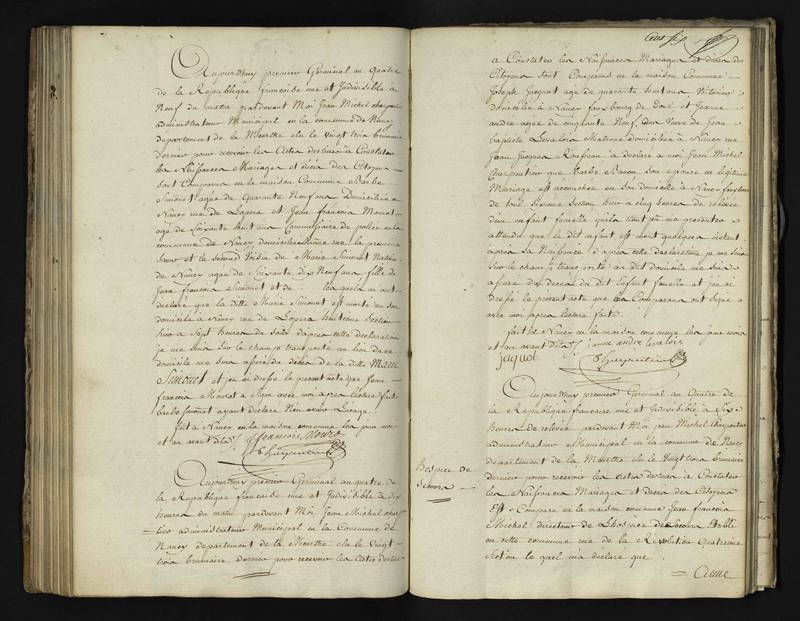 Aujourdhuy premier Germinal an Quatre
de la République francaise une et Indivisible à
Neuf du matin pardevant Moi Jean Michel charpentier
administrateur Municipal en la commune de Nancy
departement de la Meurthe elu le vingt trois brumaire
dernier pour recevoir les Actes destinés à Constater
les Naissances Mariages et décès des Citoyens
sont Comparus en la maison Commune Barbe
Simonet agée de Quarante Neuf ans Domiciliée à
Nancy rue de Lopera et Jean francois
agé de Soixante huit ans Commissaire de police en la
commune de Nancy domicilié rue la premiere
et le second Voisin de Marie Simonet Native
de Nancy agée de Soixante Dix Neuf ans fille de
Jean francois Simonet et de les quels m'ont
declaré que la ditte Marie Simonet est morte en son
domicile à Nancy rue de Lopera huitieme Section
hier à Sept heures du Soir daprès cette déclaration
je me suis sur le champ transporté au lieu de ce
domicile me suis assuré du décès de la ditte Marie
Simonet et j'ai dressé le present acte que Jean
francois a signé avec moi après lecture faite
barbe simonet ayant declaré n'en avoir l'usage.
fait à Nancy en la maison commune les jour mois
et an avant dits francois
Charpentier
Aujourdhuy premier Germinal an quatre de
la Republique francaise une et Indivisible à dix
heures du matin pardevant Moi Jean Michel charpen
tier administrateur Municipal en la Commune de
Nancy departement de la Meurthe elu le vingt
trois brumaire dernier pour recevoir les Actes destinés
a Constater les Naissances Mariages et décès des
Citoyens sont Comparus en la maison Commune
Joseph agé de quarante huit ans
domicilié à Nancy faux bourg de et Jeanne
andré agée de cinquante Neuf ans Veuve de Jean
baptiste Levalois domiciliée à Nancy rue
Jean Jacques Rousseau a déclaré a moi Jean Michel
Charpentier que barbe son epouse en legitime
Mariage est accouchée en son domicile à Nancy faux bourg
de sixieme Section hier à cinq heures de relevée
d'un enfant femelle qu'ils n'ont pu me presenter
attendu que le dit enfant est mort quelques instant
après sa Naissance d'après cette declaration je me suis
sur le champ transporté au dit domicile me suis
assuré du décès du dit Enfant femelle et j'ai
dressé le present acte que les Comparans ont signé
avec moi après lecture faite.
fait à Nancy en la maison commune les jour mois
et an avant dits j anne andré levalois
jaquot Charpentier
Aujourdhuy premier Germinal an Quatre de
la Republique francaise une et Indivisible à Six
heures de relevée pardevant Moi jean Michel Charpentier
administrateur Municipal en la commune de Nancy
departement de la Meurthe elu le Vingt trois brumaire
dernier pour recevoir les actes destinés à Constater
les Naissances Mariages et décès des Citoyens
Est Comparu en la maison commune jean francois
Michel directeur de Lhospice de Secours Etabli
en cette commune rue de la Revolution Quatrieme
Section le quel m'a declaré que
Hospice de
Secours